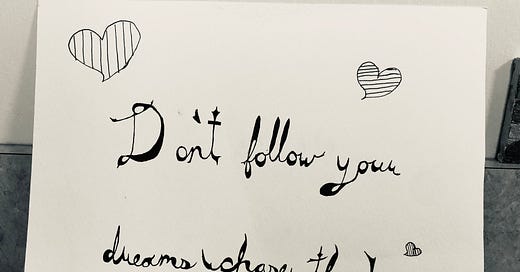 Don't follow your
dreams, chase